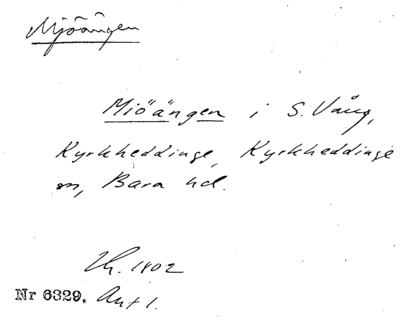 Mjöängen
Miöängen i S. Vång,
Kyrkheddinge, Kyrkheddinge
sn, Bara hd.
Lh. 1802
Nr 6329. Akt 1.